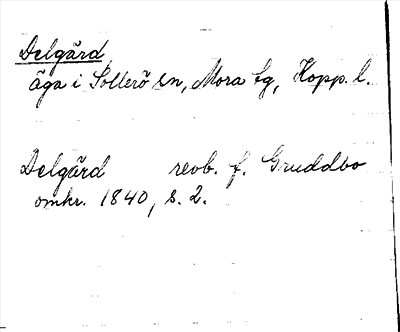 Delgärd,
äga i Sollerö sn, Mora tg, Kopp. l.
Delgärd revb. f. Gruddbo
omkr. 1840, s. 2.